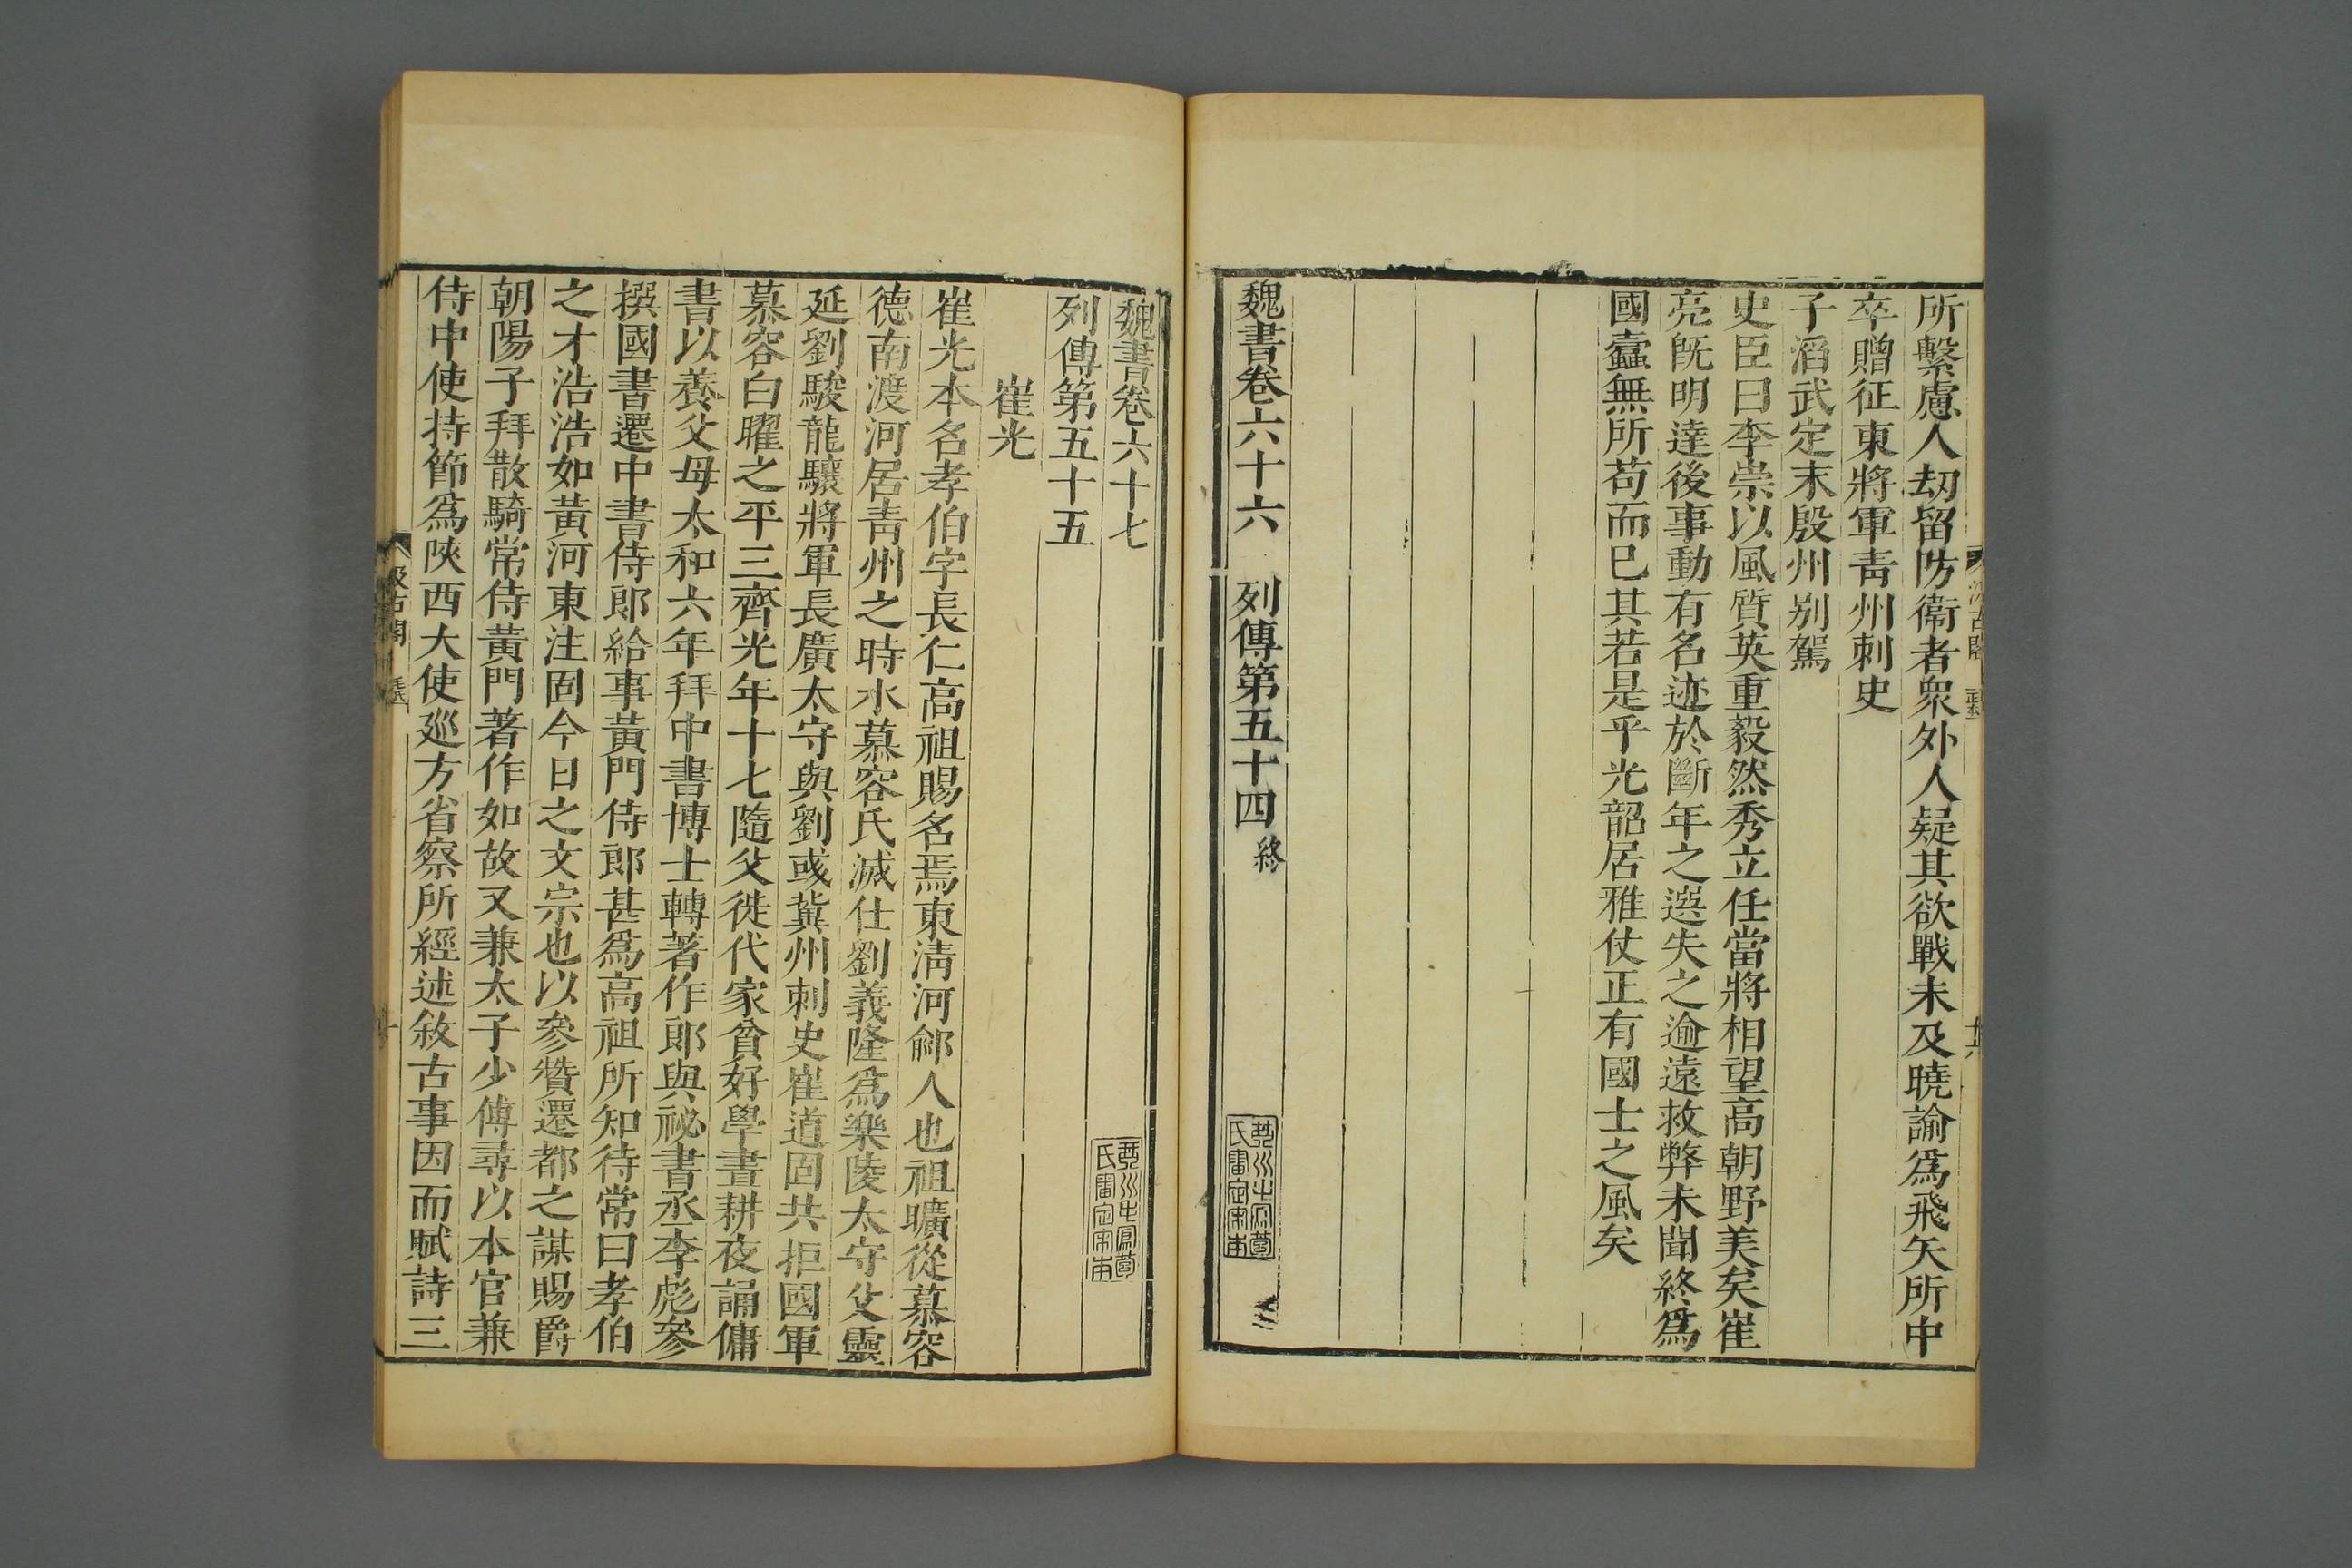 所繫慮人劫留防衞者衆外人疑其欲戰未及曉諭爲飛矢所中
卒贈征東將軍靑州刺史
子滔武定末殷州别駕
史臣曰李崇以風質英重毅然秀立任當將相望高朝野美矣崔
亮旣明達後事動有名迹於斷年之選失之逾遠救弊未聞終爲
國蠹無所苟而已其若是乎光韶居雅仗正有國士之風矣
魏書卷六十六 列傳第五十四 終
魏書卷六十七
列傳第五十五
崔光
崔光本名孝伯字長仁高祖賜名焉東淸河鄃人也祖曠從慕容
德南渡河居靑州之時水慕容氏滅仕劉義隆爲樂陵太守父靈
延劉駿龍驤將軍長廣太守與劉彧冀州刺史崔道固共拒國軍
慕容白曜之平三齊光年十七隨父徙代家貧好學晝耕夜誦傭
書以養父母太和六年拜中書博士轉著作郎與祕書丞李彪參
撰國書遷中書侍郎給事黃門侍郎甚爲高祖所知待常曰孝伯
之才浩浩如黃河東注固今日之文宗也以參贊遷都之謀賜爵
朝陽子拜散騎常侍黃門著作如故又兼太子少傅尋以本官兼
侍中使持節爲陝西大使巡方省察所經述敘古事因而賦詩三